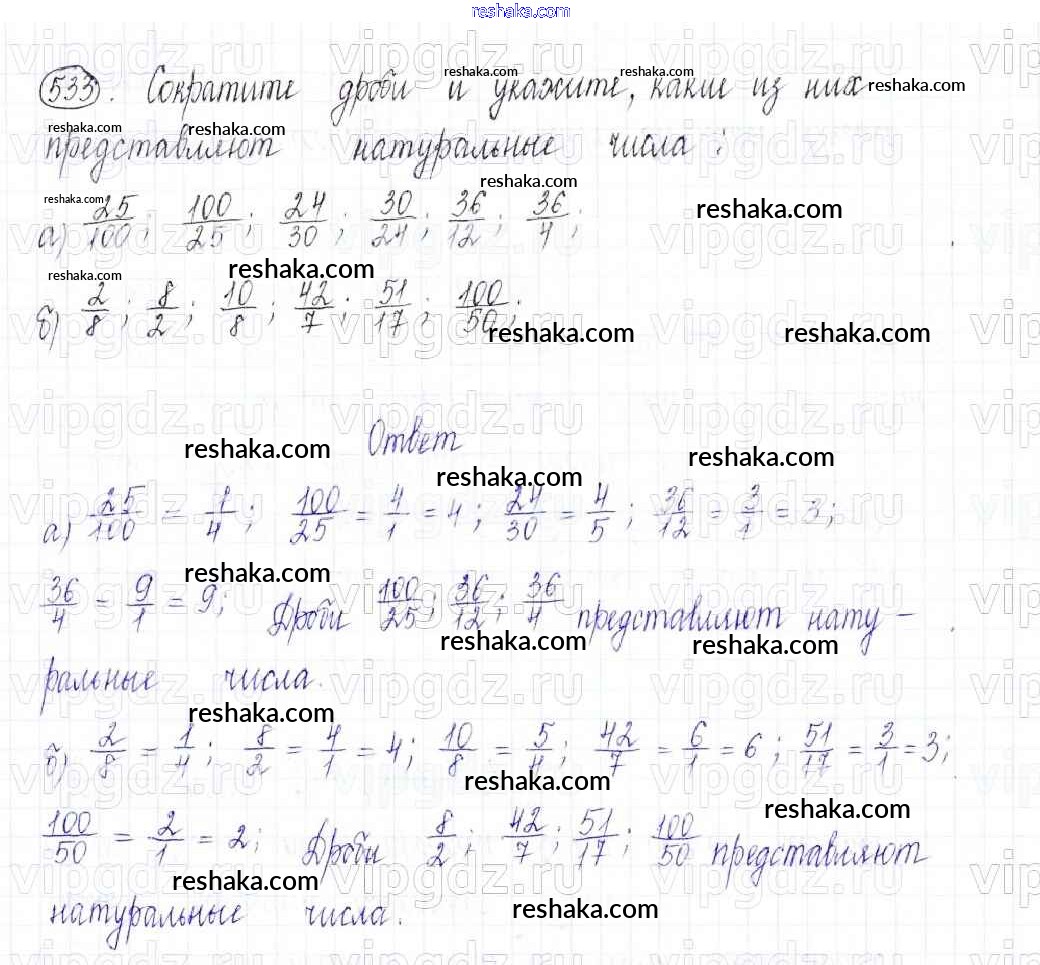 reshaka.com
533. Сократите дроби и укажите, какие из них
представляют натуральные числа:
а) 25/100; 100/25; 24/30; 30/24; 36/12; 36/4;
б) 2/8; 8/2; 10/8; 42/7; 51/17; 100/50;
Ответ
а) 25/100 = 1/4; 100/25 = 4/1 = 4; 24/30 = 4/5; 36/12 = 3/1 = 3;
36/4 = 9/1 = 9; Дроби 100/25; 36/12; 36/4 представляют нату-
ральные числа.
б) 2/8 = 1/4; 8/2 = 4/1 = 4; 10/8 = 5/4; 42/7 = 6/1 = 6; 51/17 = 3/1 = 3;
100/50 = 2/1 = 2; Дроби 8/2; 42/7; 51/17; 100/50 представляют
натуральные числа.